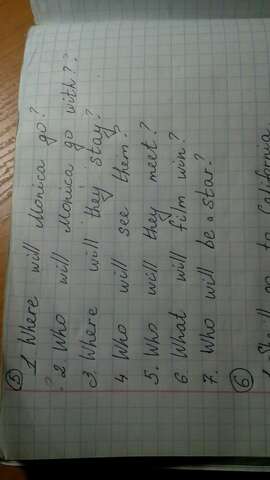 5
1 Where will Monica go?
2 Who will Monica go with?
3. Where will they stay?
4 Who will see them?
5. Who will they meet?
6. What will film win?
7. Who will be a star?
6
to California